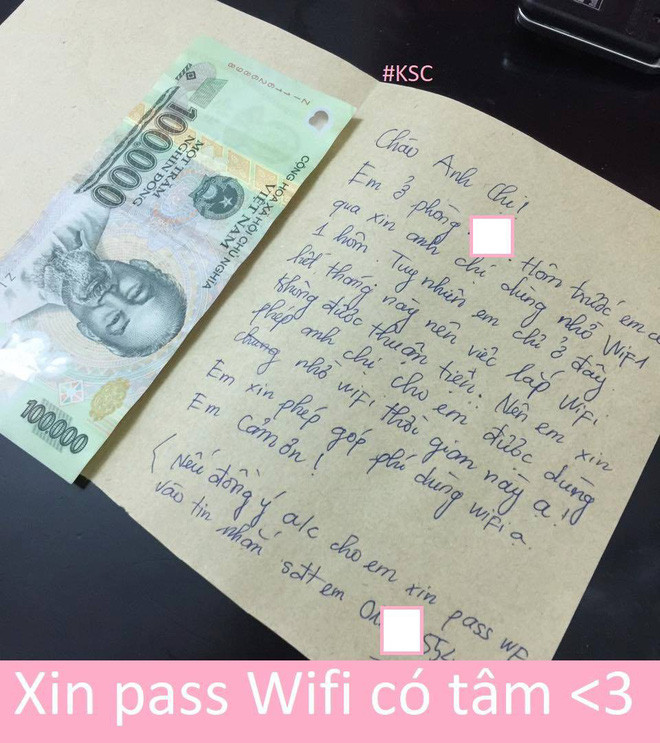 #KSC
CỘNG HÒA XÃ HỘI CHỦ NGHĨA
VIỆT NAM
MỘT TRĂM
NGHÌN ĐỒNG
100000
100000
Chào Anh Chị!
Em ở phòng Hôm trước em có
qua xin anh chị dùng nhờ WiFi
1 hôm. Tuy nhiên em chỉ ở đây
hết tháng này nên việc lắp WiFi
không được thuận tiện. Nên em xin
phép anh chị cho em được dùng
chung nhờ wiFi thời gian này ạ!
Em xin phép góp phí dùng wiFi ạ.
Em Cảm ơn!
(Nếu đồng ý a/c cho em xin pass WF
vào tin nhắn sđt em
Xin pass Wifi có tâm <3